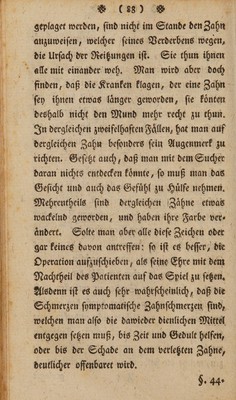 ( 88 )
geplaget werden, sind nicht im Stande den Zahn
anzuweisen, welcher seines Verderbens wegen,
die Ursach der Reitzungen ist. Sie thun ihnen
alle mit einander weh. Man wird aber doch
finden, daß die Kranken klagen, der eine Zahn
sey ihnen etwas länger geworden, sie könten
deshalb nicht den Mund mehr recht zu thun.
In dergleichen zweifelhaften Fällen, hat man auf
dergleichen Zahn besonders sein Augenmerk zu
richten. Gesetzt auch, daß man mit dem Sucher
daran nichts entdecken könnte, so muß man das
Gesicht und auch das Gefühl zu Hülfe nehmen.
Mehrentheils sind dergleichen Zähne etwas
wackelnd geworden, und haben ihre Farbe ver-
ändert. Solte man aber alle diese Zeichen oder
gar keines davon antreffen: so ist es besser, die
Operation aufzuschieben, als seine Ehre mit dem
Nachtheil des Patienten auf das Spiel zu setzen.
Alsdenn ist es auch sehr wahrscheinlich, daß die
Schmerzen symptomatische Zahnschmerzen sind,
welchen man also die dawieder dienlichen Mittel
entgegen setzen muß, bis Zeit und Gedult helfen,
oder bis der Schade an dem verletzten Zahne,
deutlicher offenbaret wird.
§. 44.